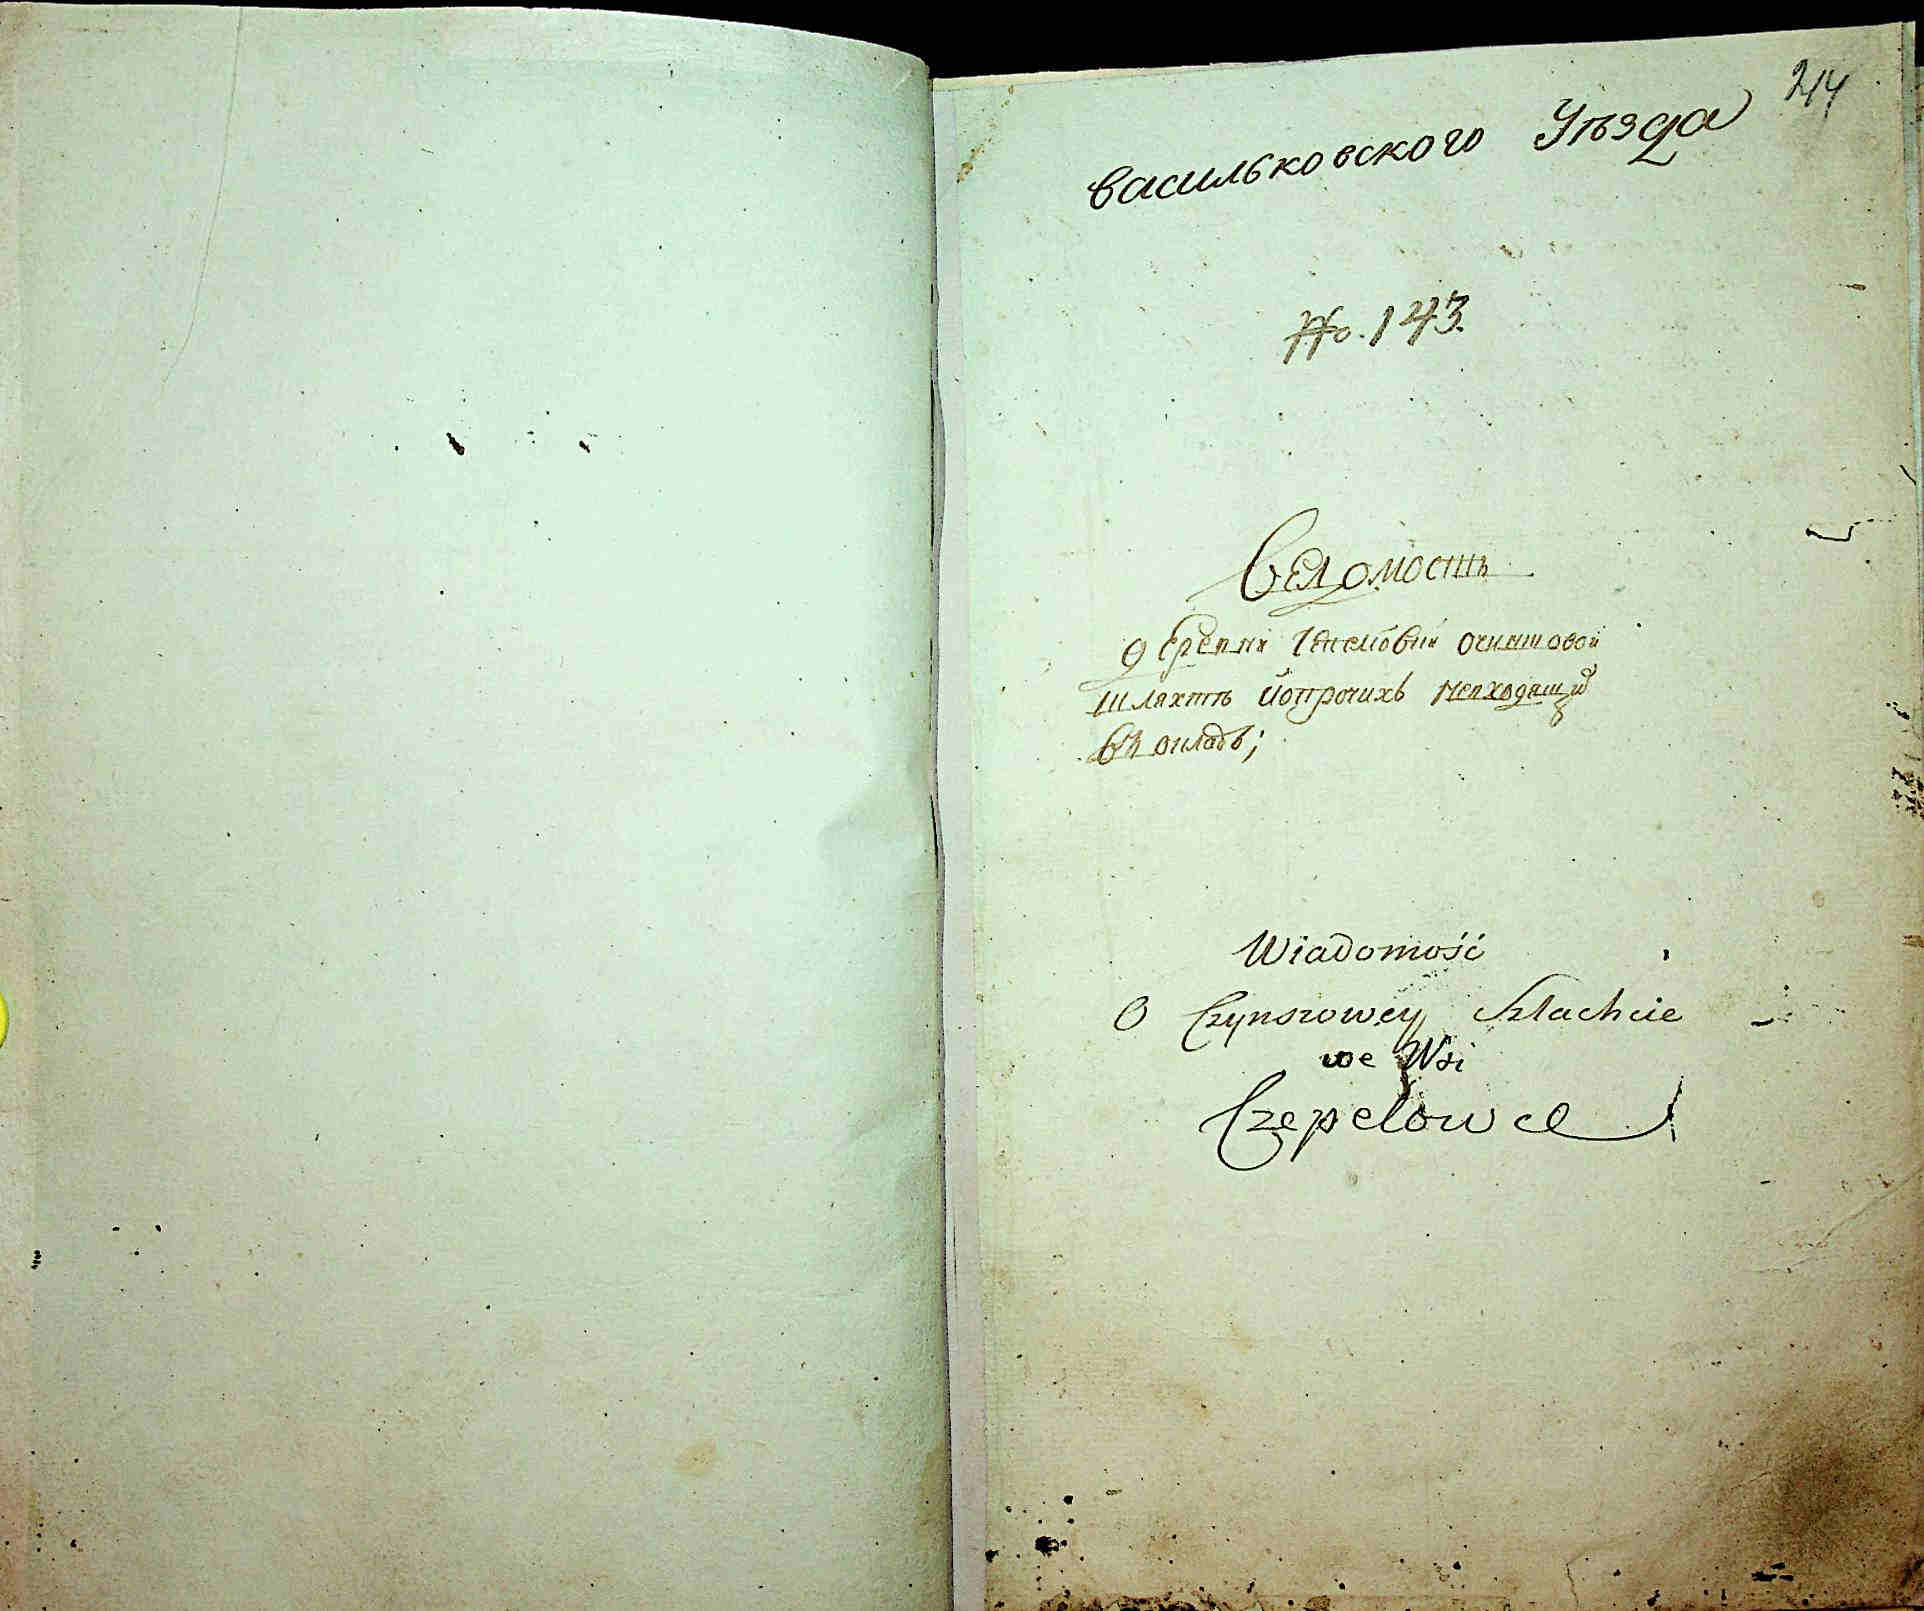 214
Васильковского Уѣзда
No. 143.
Ведомость
деревни Чепелювки очиншовой
шляхтѣ иопрочихъ невходящих
въ окладъ;
Wiadomość
O Czynszowey Szlachcie
we Wsi
Czepelowce